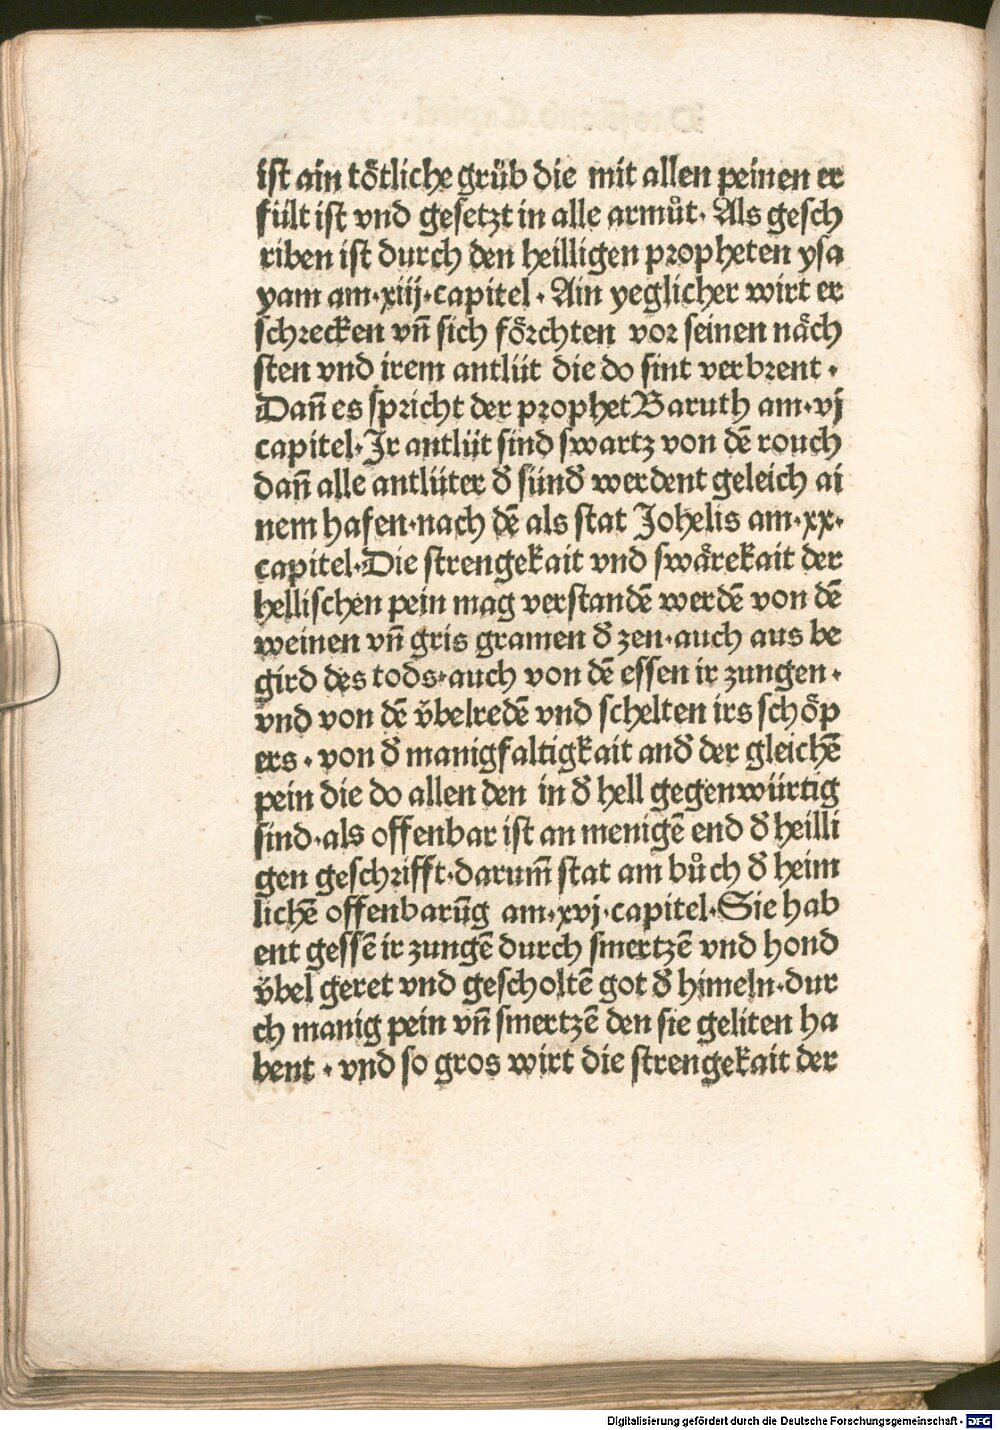 ist ain tötliche grüb die mit allen peinen er
fült ist vnd gesetzt in alle armůt. Als gesch
riben ist durch den heilligen propheten ysa
yam am·xiij·capitel · Ain yeglicher wirt er
schrecken vñ sich förchten vor seinen näch
sten vnd irem antlüt die do sint verbrent ·
Dañ es spricht der prophet Baruth am·vj
capitel·Ir antlüt sind swartz von dē rouch
dañ alle antlüter đ sünđ werdent geleich ai
nem hafen·nach dē als stat Johelis am·xx·
capitel·Die strengekait vnd swärekait der
hellischen pein mag verstandē werdē von dē
weinen vñ gris gramen đ zen·auch aus be
gird des tods·auch von dē essen ir zungen ·
vnd von dē v̈belredē vnd schelten irs schöp
ers · von đ manigfaltigkait anđ der gleichē
pein die do allen den in đ hell gegenwürtig
sind·als offenbar ist an menigē end đ heilli
gen geschrifft·darum̄ stat am bůch đ heim
lichē offenbarūg am·xvj·capitel·Sie hab
ent gessē ir zungē durch smertzē vnd hond
v̈bel geret vnd gescholtē got đ himeln·dur
ch manig pein vñ smertzē den sie geliten ha
bent · vnd so gros wirt die strengekait der
Digitalisierung gefördert durch die Deutsche Forschungsgemeinschaft - DFG